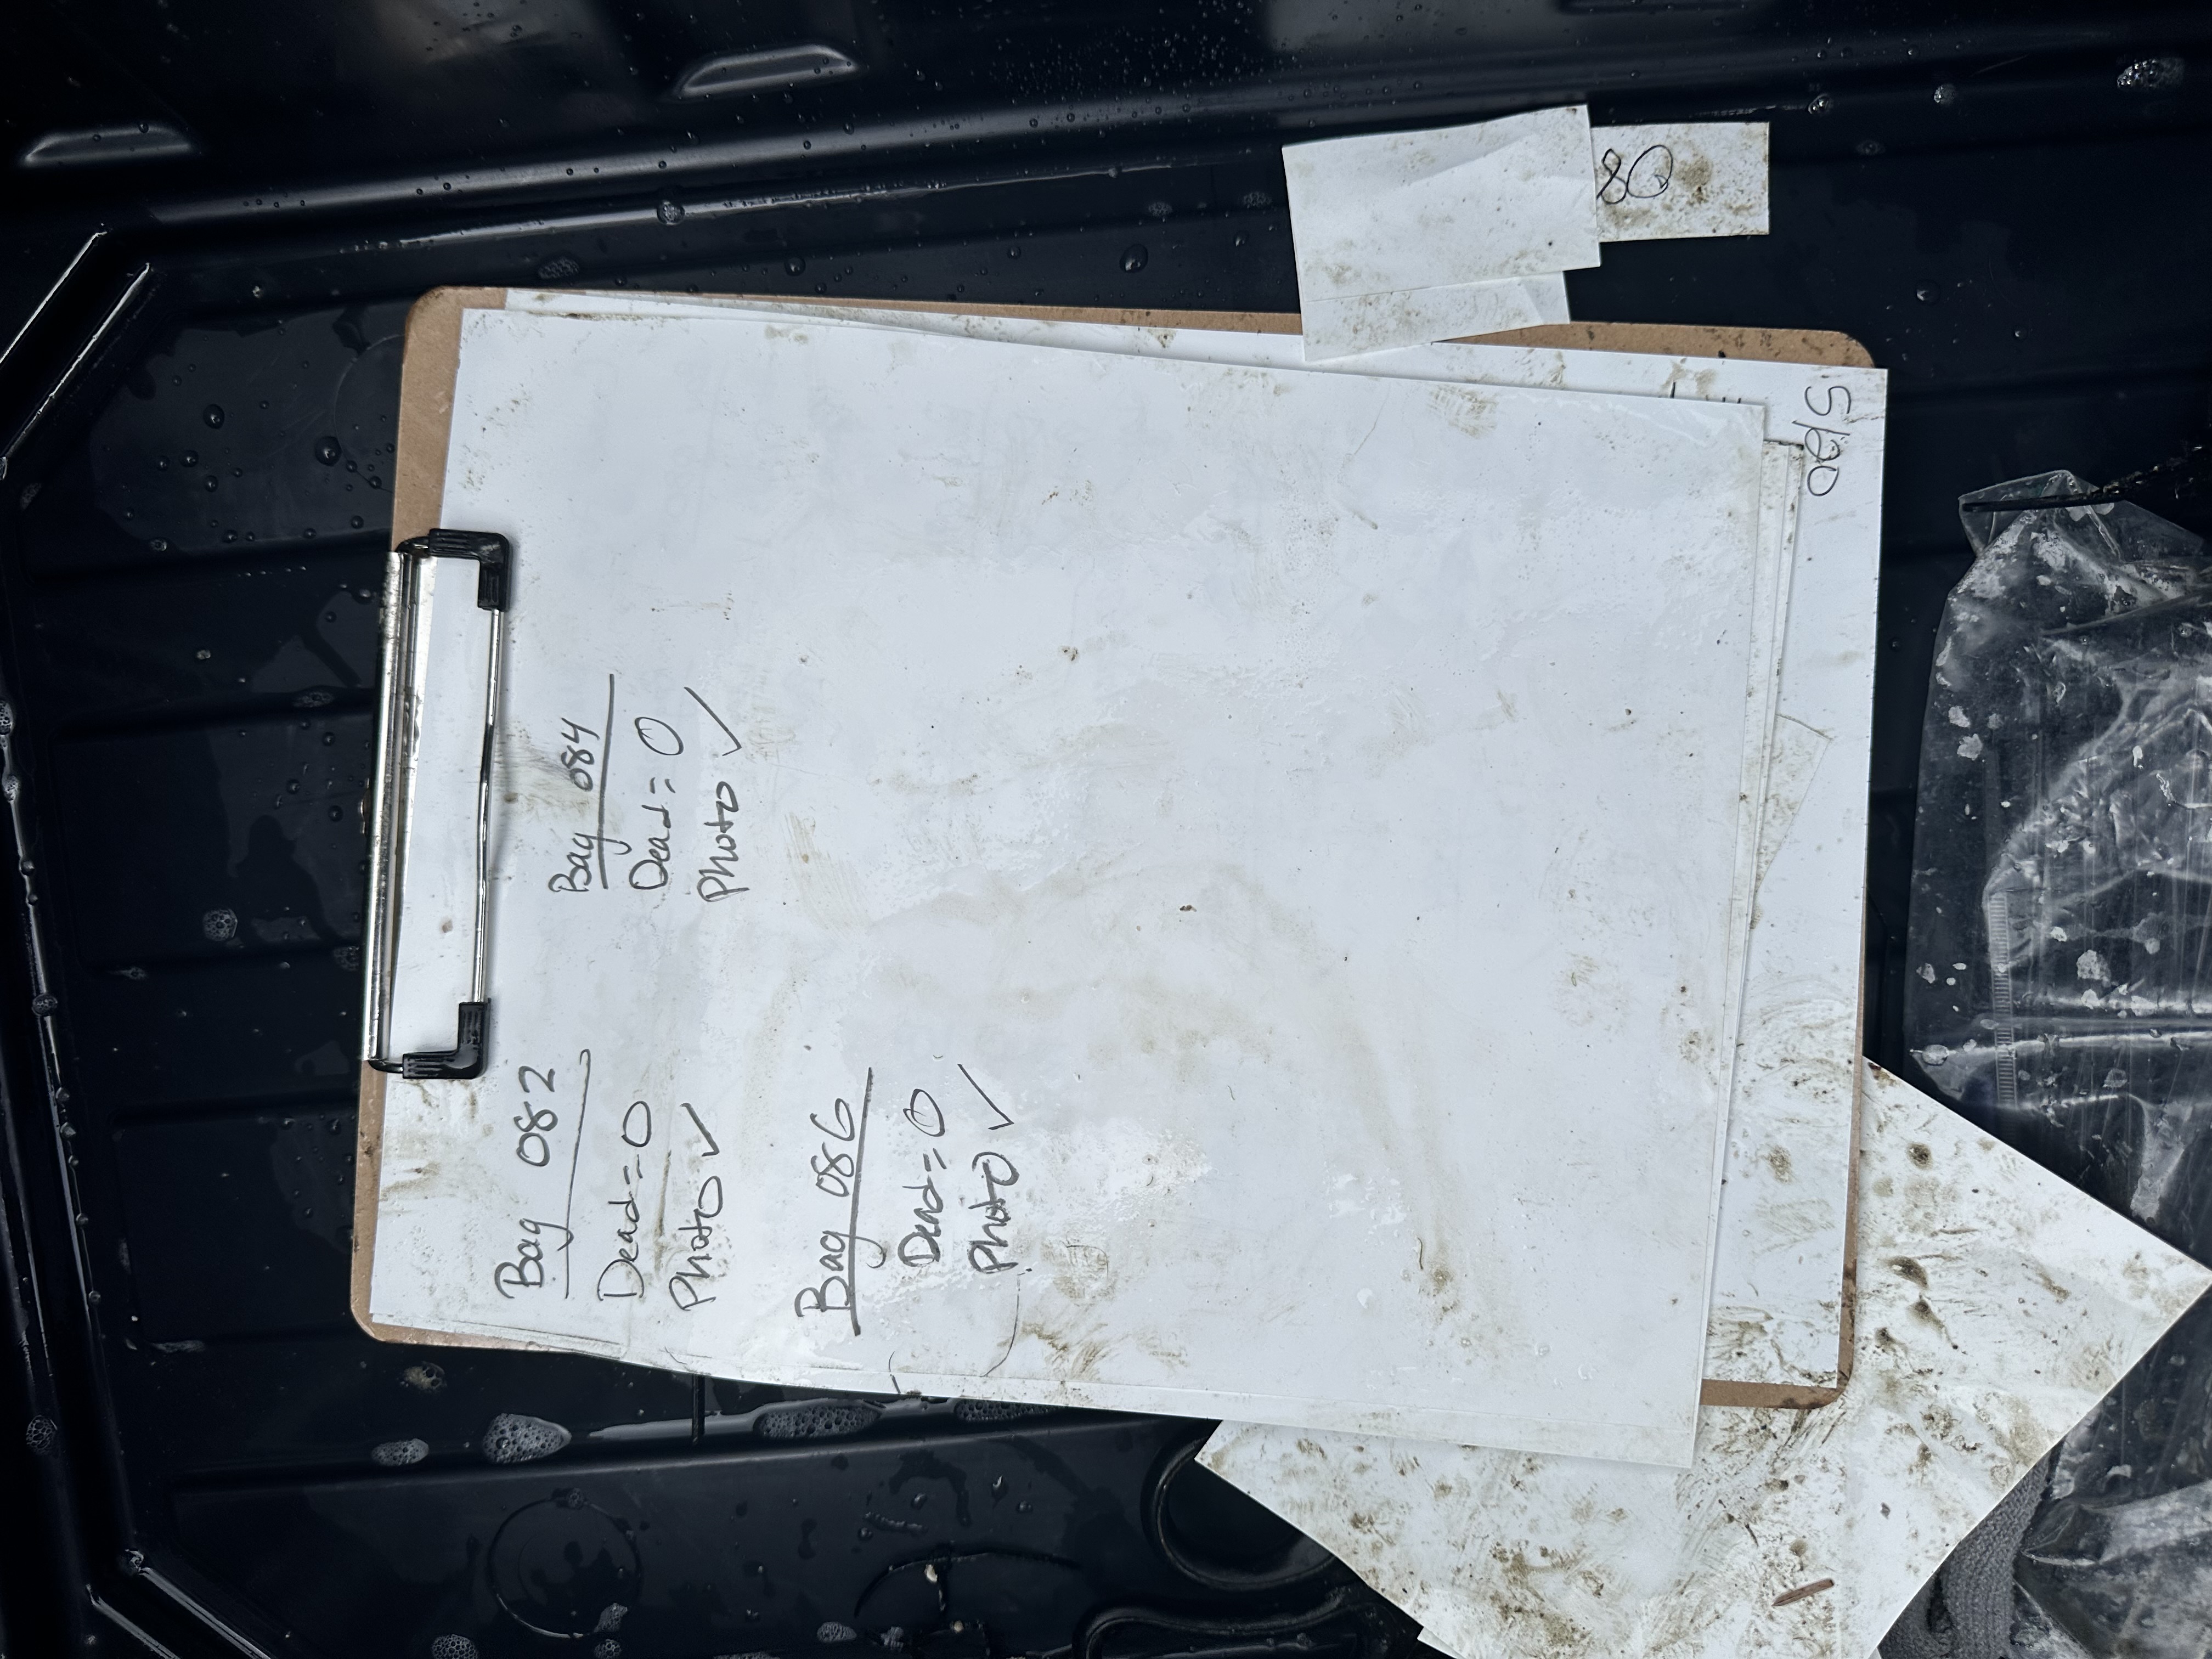 Bag 082
Dead=0
Photo ✓
Bag 084
Dead=0
Photo ✓
Bag 086
Dead=0
Photo ✓